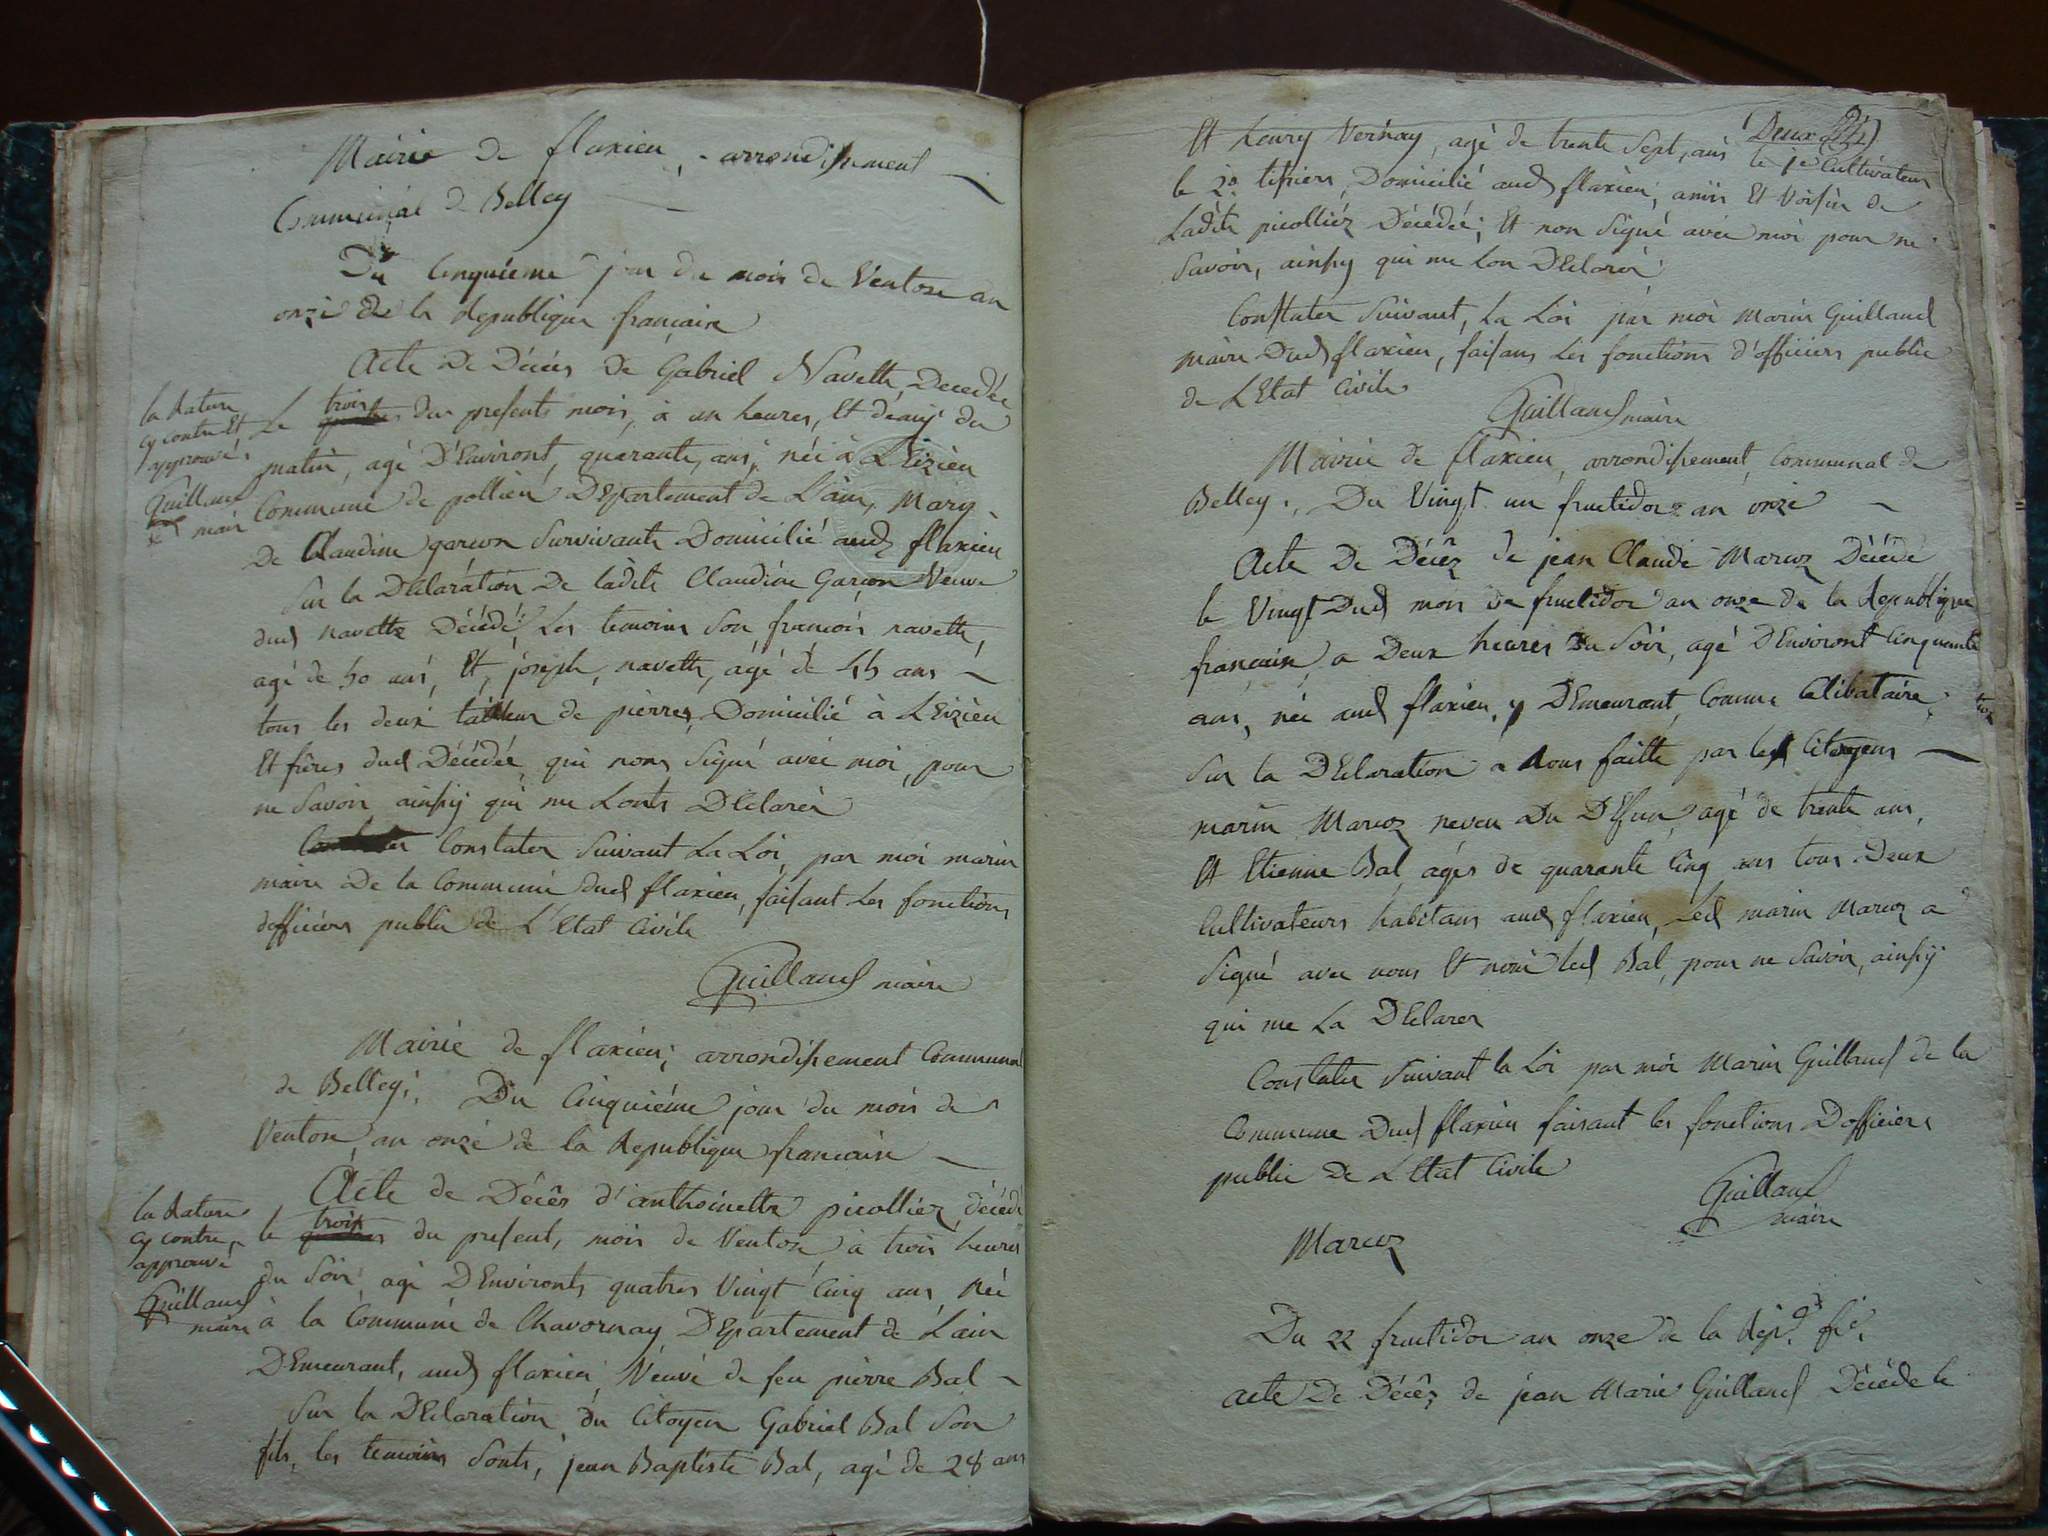 Mairie de flaxieu, arrondissement
Communal de Belley
Du Cinquieme jour du mois de Ventose an
onze de la Republique francaise
Acte De Décés de Gabriel Navette, Decedée
Le quatre trois du present mois, à un heures, Et demÿ du
matin, agé D'Environt, quarante, ans, née à LEizieu
Commune de pollieu DEpartement de L'ain, Mary
De Claudine garcon Survivante Domicilié aud flaxieu
Sur la DEclaration De ladite Claudine Garcon Veuve
dud navette Décédé, Les temoins Son francois navette,
agé de 50 ans, Et, joseph, navette, agé de 45 ans
tous les deux tailleur de pierres, Domicilié à LEizieu
Et frères dud Décédée qui nons Signé avec moi, pour
ne Savoir ainsÿ qui me Lonts DEclarér
Constater Constater Suivant La Loi, par moi marin
maire De la Commune dud flaxieu, faisant Les fonctions
dofficiérs public de L'Etat Civile
Guilland maire
la Rature
cy contre Et
approuvé
Guilland
maire
Mairie de flaxieu, arrondissement Communal
de Belley. Du Cinquiéme jour du mois de
Ventose an onze de la Republique francaise
Acte de Décés d'anthoinette picolliez, décédé
le quatres trois du present, mois de Ventose à trois heures
du Soir, agé DEnvironts quatres Vingt Cinq ans, Née
à la Commune de Chavornay DEpartement de L'ain
DEmeurant, aud flaxieu, Veuve de feu pierre Bal
Sur la DEclaration du Citoyen Gabriel Bal Son
fils, les temoins Sonts, jean Baptiste Bal, agé de 28 ans
la Rature
cy contre
approuvé
Guilland
maire
Deux
Et henry Vernay, agé de trente Sept, ans le 1e Cultivateur
le 2e tissiers, Domicilié aud flaxieu, amis Et Voisin de
Ladite picolliéz Décédée, Et non Signé avec moi pour ne
Savoir, ainsy qui me Lon DEclarér
Constater Suivant, La Loi par moi Marin Guilland
maire Dud flaxieu, faisans Les fonctions d'officiers public
de LEtat Civile
Guilland maire
Mairie de flaxieu, arrondissement, Communal de
Belley. Du Vingt un fructidor an onze
Acte De Décéz de jean Claude Marcoz Décédé
le Vingt Dud mois de fructidor an onze de la République
francaise, a Deux heures Du Soir, agé DEnviront Cinquante
ans, née aud flaxieu, y DEmeurant Comme Célibataire,
Sur la DEclaration a Nous faitte par les Citoyens
marin Marcoz neveu Du DEfun, agé de trente ans,
Et Etienne Bal, agés de quarante Cinq ans tous Deux
Cultivateurs habitans aud flaxieu, Led marin Marcoz a
Signé avec nous Et non led Bal, pour ne Savoir, ainsÿ
qui me La DEclarer
Constater Suivant la Loi par moi Marin Guilland de la
Commune Dud flaxieu faisant les fonctions Dofficiers
public de LEtat Civile
Guilland
maire
Marcoz
Du 22 fructidor an onze de la Rep. fse.
acte De Décéz de jean Marie Guilland Décédé le